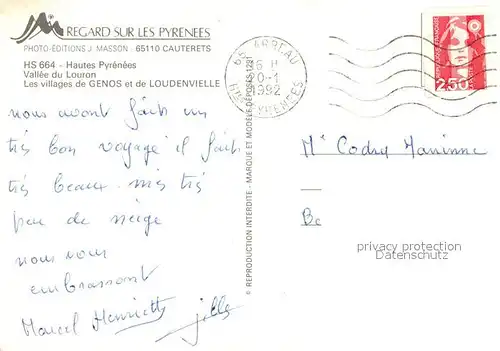 REGARD SUR LES PYRENEES
PHOTO-ÉDITIONS J. MASSON - 65110 CAUTERETS
HS 664 - Hautes Pyrénées
Vallée du Louron
Les villages de GENOS et de LOUDENVIELLE
nous avont fait un
très bon voyage il fait
très beaux mis très
peu de neige
nous vous
embrassont
Marcel Henriette Gilles
© REPRODUCTION INTERDITE - MARQUE ET MODÈLE DÉPOSÉS
65 ARREAU
16 H
20-1
1992
HTES PYRENEES
2,50
Me Codry
Be
privacy protection
Datenschutz